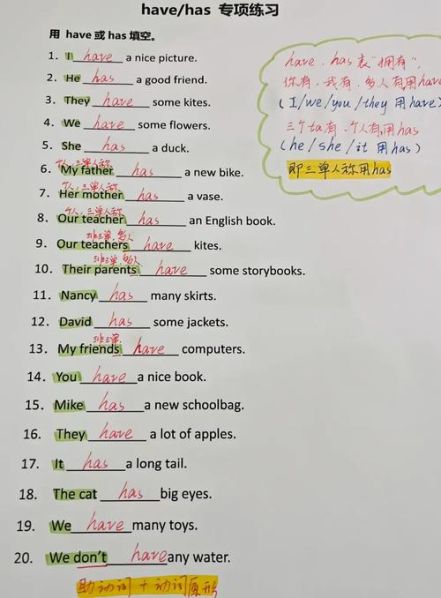 have/has 专项练习
用 have 或 has 填空。
have、has 表"拥有",
你有、我有、多人有用have
(I/we/you/they 用 have)
三个ta有、个人有用has
(he/she/it 用 has)
即三单人称用has
1. I have a nice picture.
2. He has a good friend.
3. They have some kites.
4. We have some flowers.
5. She has a duck.
个人,三单人称
6. My father has a new bike.
个人,三单人称
7. Her mother has a vase.
个人,三单人称
8. Our teacher has an English book.
非三单,多人
9. Our teachers have kites.
非三单,多人
10. Their parents have some storybooks.
11. Nancy has many skirts.
12. David has some jackets.
非三单
13. My friends have computers.
14. You have a nice book.
15. Mike has a new schoolbag.
16. They have a lot of apples.
17. It has a long tail.
18. The cat has big eyes.
19. We have many toys.
20. We don't have any water.
助动词+动词原形